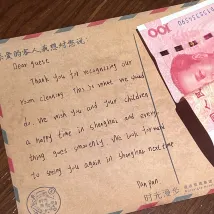 亲爱的客人我想对您说:
Dear guest
Thank you for recognizing our
room cleaning. This is what we should
do. We wish you and your children
a happy time in shanghai, and every-
thing goes smoothly. We look forward
to seeing you again in shanghai next time
Pan pan
时光漫步
100